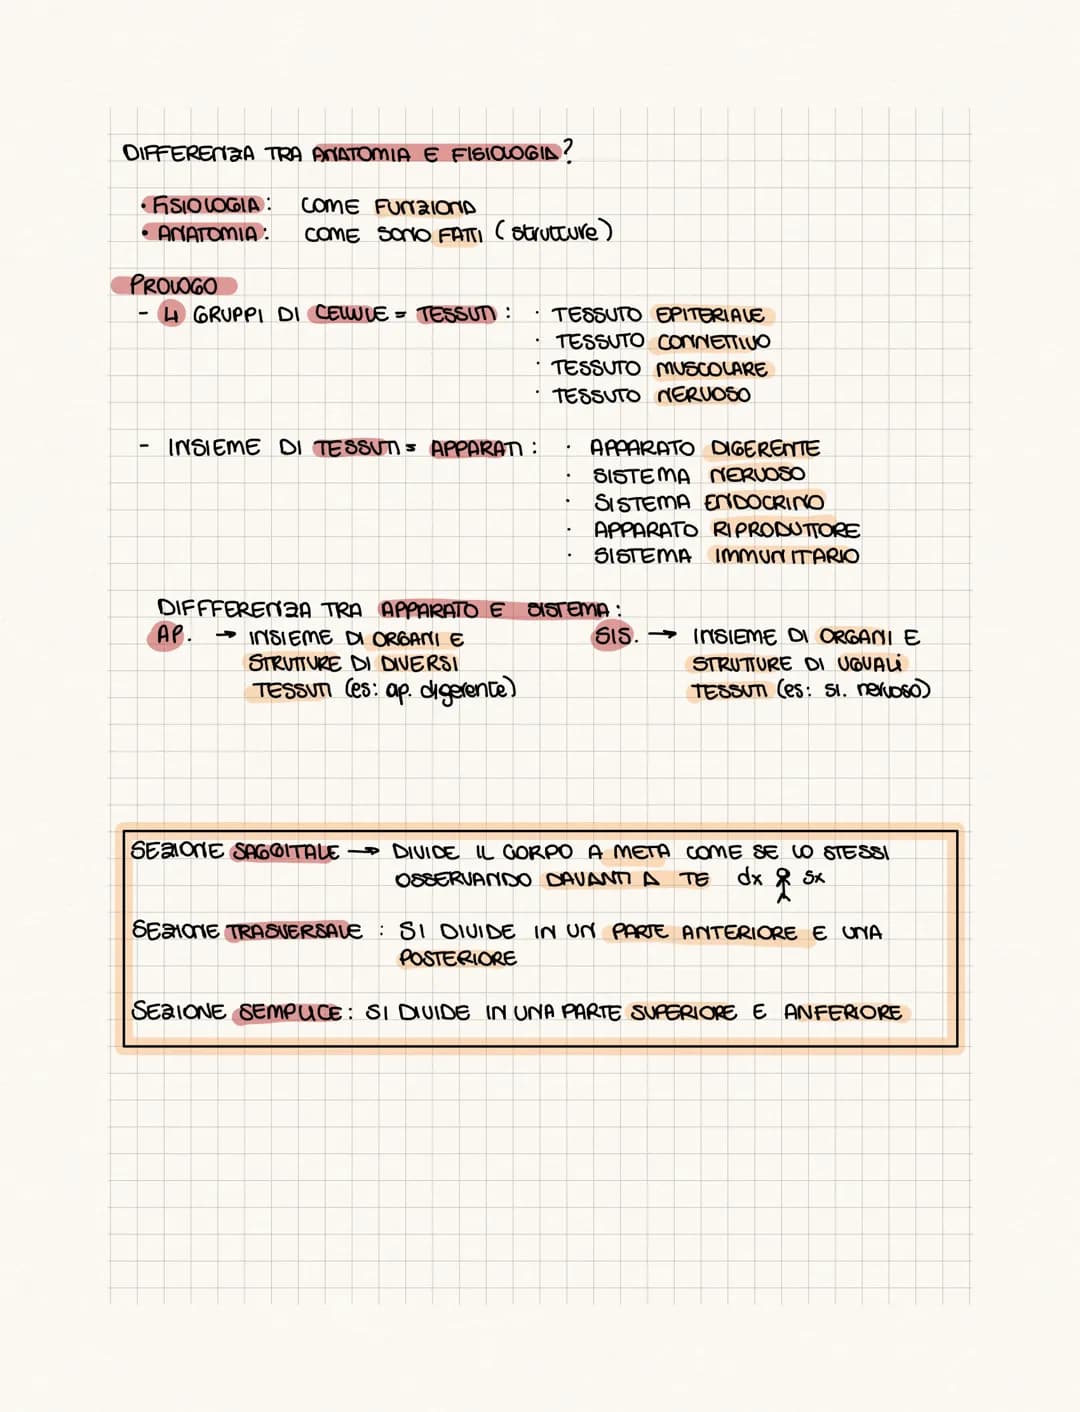 DIFFERENZA TRA ANATOMIA E FISIOLOGIA?
• FISIOLOGIA: COME FUNZIONA
• ANATOMIA: COME SONO FATTI (strutture)
PROLOGO
- 4 GRUPPI DI CELLULE = TESSUTI : · TESSUTO EPITERIALE
· TESSUTO CONNETTIVO
· TESSUTO MUSCOLARE
· TESSUTO NERVOSO
- INSIEME DI TESSUTI = APPARATI : · APPARATO DIGERENTE
· SISTEMA NERVOSO
· SISTEMA ENDOCRINO
· APPARATO RIPRODUTTORE
· SISTEMA IMMUNITARIO
DIFFFERENZA TRA APPARATO E SISTEMA :
AP. → INSIEME DI ORGANI E
STRUTTURE DI DIVERSI
TESSUTI (es: ap. digerente)
SIS. → INSIEME DI ORGANI E
STRUTTURE DI UGUALI
TESSUTI (es: SI. nervoso)
SEZIONE SAGGITALE → DIVIDE IL CORPO A META COME SE LO STESSI
OSSERVANDO DAVANTI A TE dx sx
SEZIONE TRASVERSALE : SI DIVIDE IN UN PARTE ANTERIORE E UNA
POSTERIORE
SEZIONE SEMPLICE : SI DIVIDE IN UNA PARTE SUPERIORE E ANFERIORE